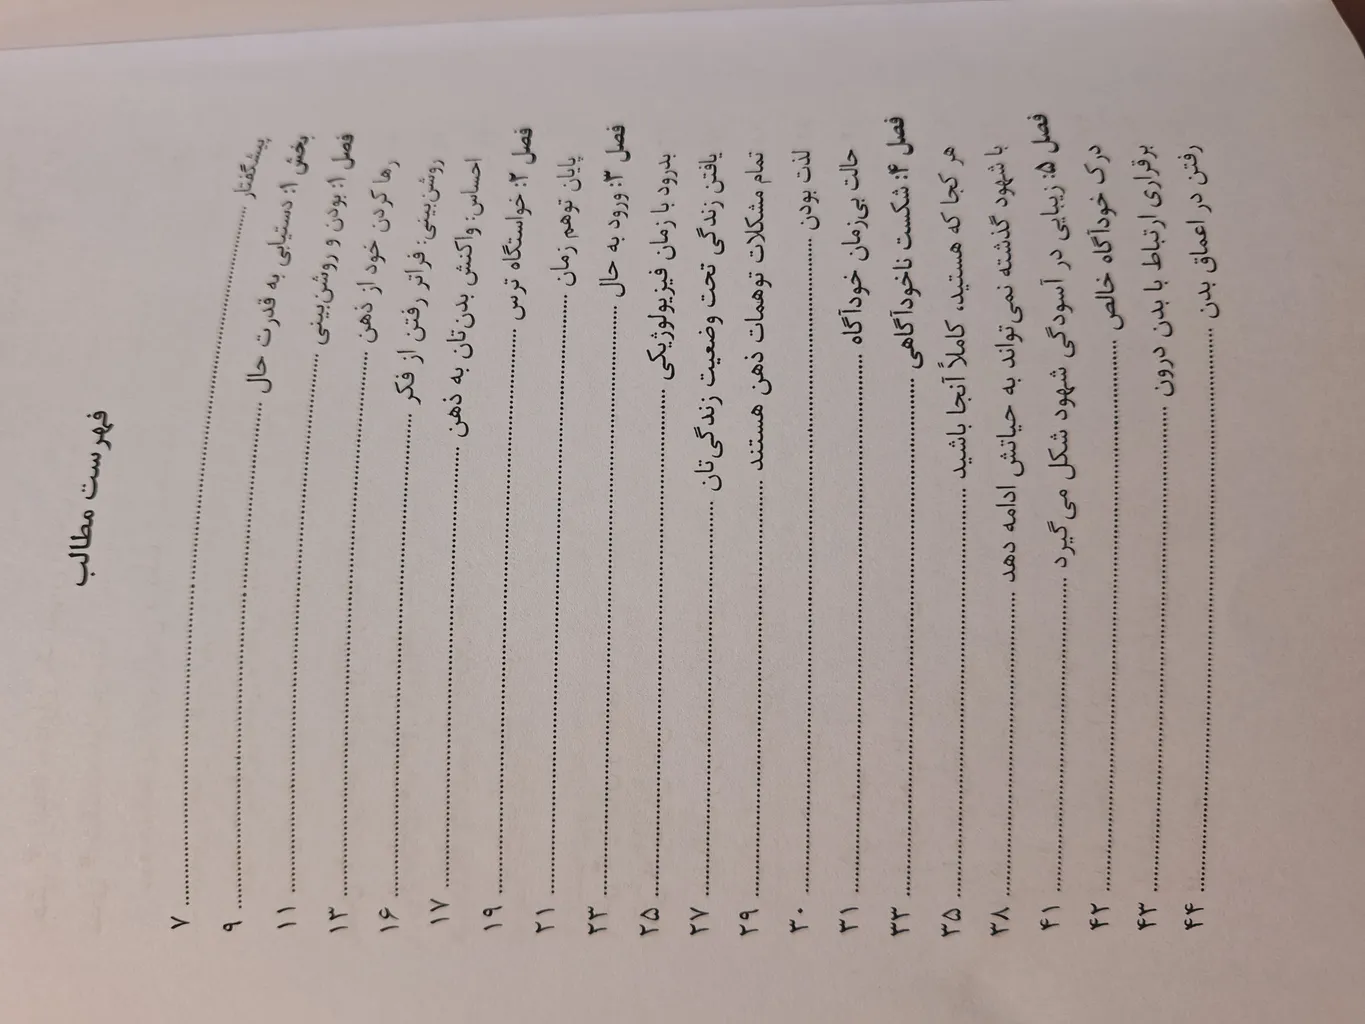 فهرست مطالب
پیشگفتار ........ ۷
بخش ۱: دستیابی به قدرت حال ........ ۹
فصل ۱: بودن و روشن‌بینی ........ ۱۱
رها کردن خود از ذهن ........ ۱۳
روشن‌بینی: فراتر رفتن از فکر ........ ۱۶
احساس: واکنش بدن‌تان به ذهن ........ ۱۷
فصل ۲: خواستگاه ترس ........ ۱۹
پایان توهم زمان ........ ۲۱
فصل ۳: ورود به حال ........ ۲۳
بدرود با زمان فیزیولوژیکی ........ ۲۵
یافتن زندگی تحت وضعیت زندگی‌تان ........ ۲۷
تمام مشکلات توهمات ذهن هستند ........ ۲۹
لذت بودن ........ ۳۰
حالت بی‌زمان خودآگاه ........ ۳۱
فصل ۴: شکست ناخودآگاهی ........ ۳۳
هر کجا که هستید، کاملاً آنجا باشید ........ ۳۵
با شهود گذشته نمی‌تواند به حیاتش ادامه دهد ........ ۳۸
فصل ۵: زیبایی در آسودگی شهود شکل می‌گیرد ........ ۴۱
درک خودآگاه خالص ........ ۴۲
برقراری ارتباط با بدن درون ........ ۴۳
رفتن در اعماق بدن ........ ۴۴